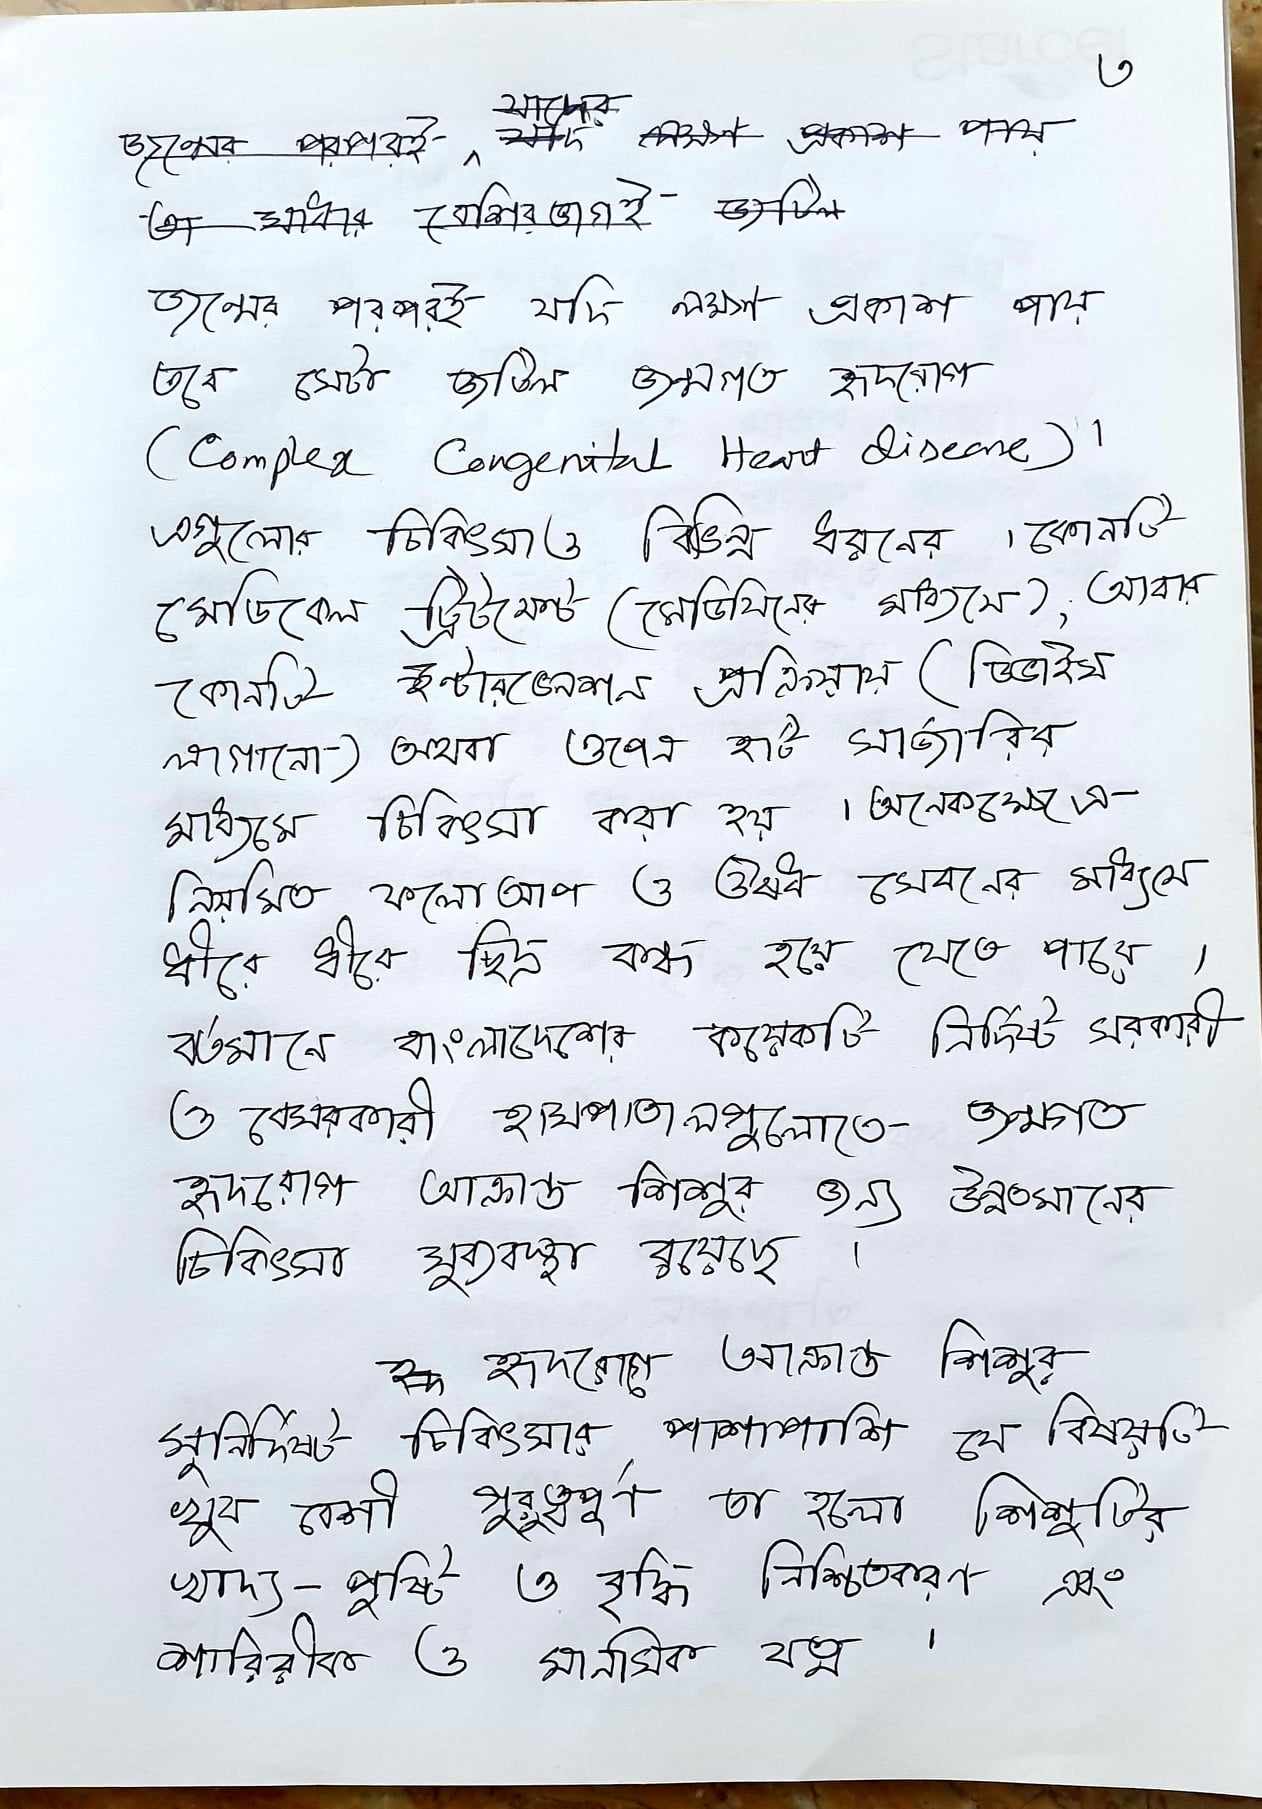 ৩
যাদের
জন্মের পরপরই যদি লক্ষণ প্রকাশ পায়
তা আবার বেশিরভাগই জটিল
জন্মের পরপরই যদি লক্ষণ প্রকাশ পায়
তবে সেটা জটিল জন্মগত হৃদরোগ
(Complex Congenital Heart Disease)।
এগুলোর চিকিৎসাও বিভিন্ন ধরনের । কোনটি
মেডিকেল ট্রিটমেন্ট (মেডিসিনের মাধ্যমে), আবার
কোনটি ইন্টারভেনশন প্রক্রিয়ায় (ডিভাইস
লাগানো) অথবা ওপেন হার্ট সার্জারির
মাধ্যমে চিকিৎসা করা হয় । অনেকক্ষেত্রে
নিয়মিত ফলোআপ ও ঔষধ সেবনের মাধ্যমে
ধীরে ধীরে ছিদ্র বন্ধ হয়ে যেতে পারে ।
বর্তমানে বাংলাদেশের কয়েকটি নির্দিষ্ট সরকারী
ও বেসরকারী হাসপাতালগুলোতে জন্মগত
হৃদরোগ আক্রান্ত শিশুর জন্য উন্নতমানের
চিকিৎসা সুব্যবস্থা রয়েছে ।
হৃদরোগে আক্রান্ত শিশুর
সুনির্দিষ্ট চিকিৎসার পাশাপাশি যে বিষয়টি
খুব বেশী গুরুত্বপূর্ণ তা হলো শিশুটির
খাদ্য-পুষ্টি ও বৃদ্ধি নিশ্চিতকরণ এবং
শারিরীক ও মানসিক যত্ন ।